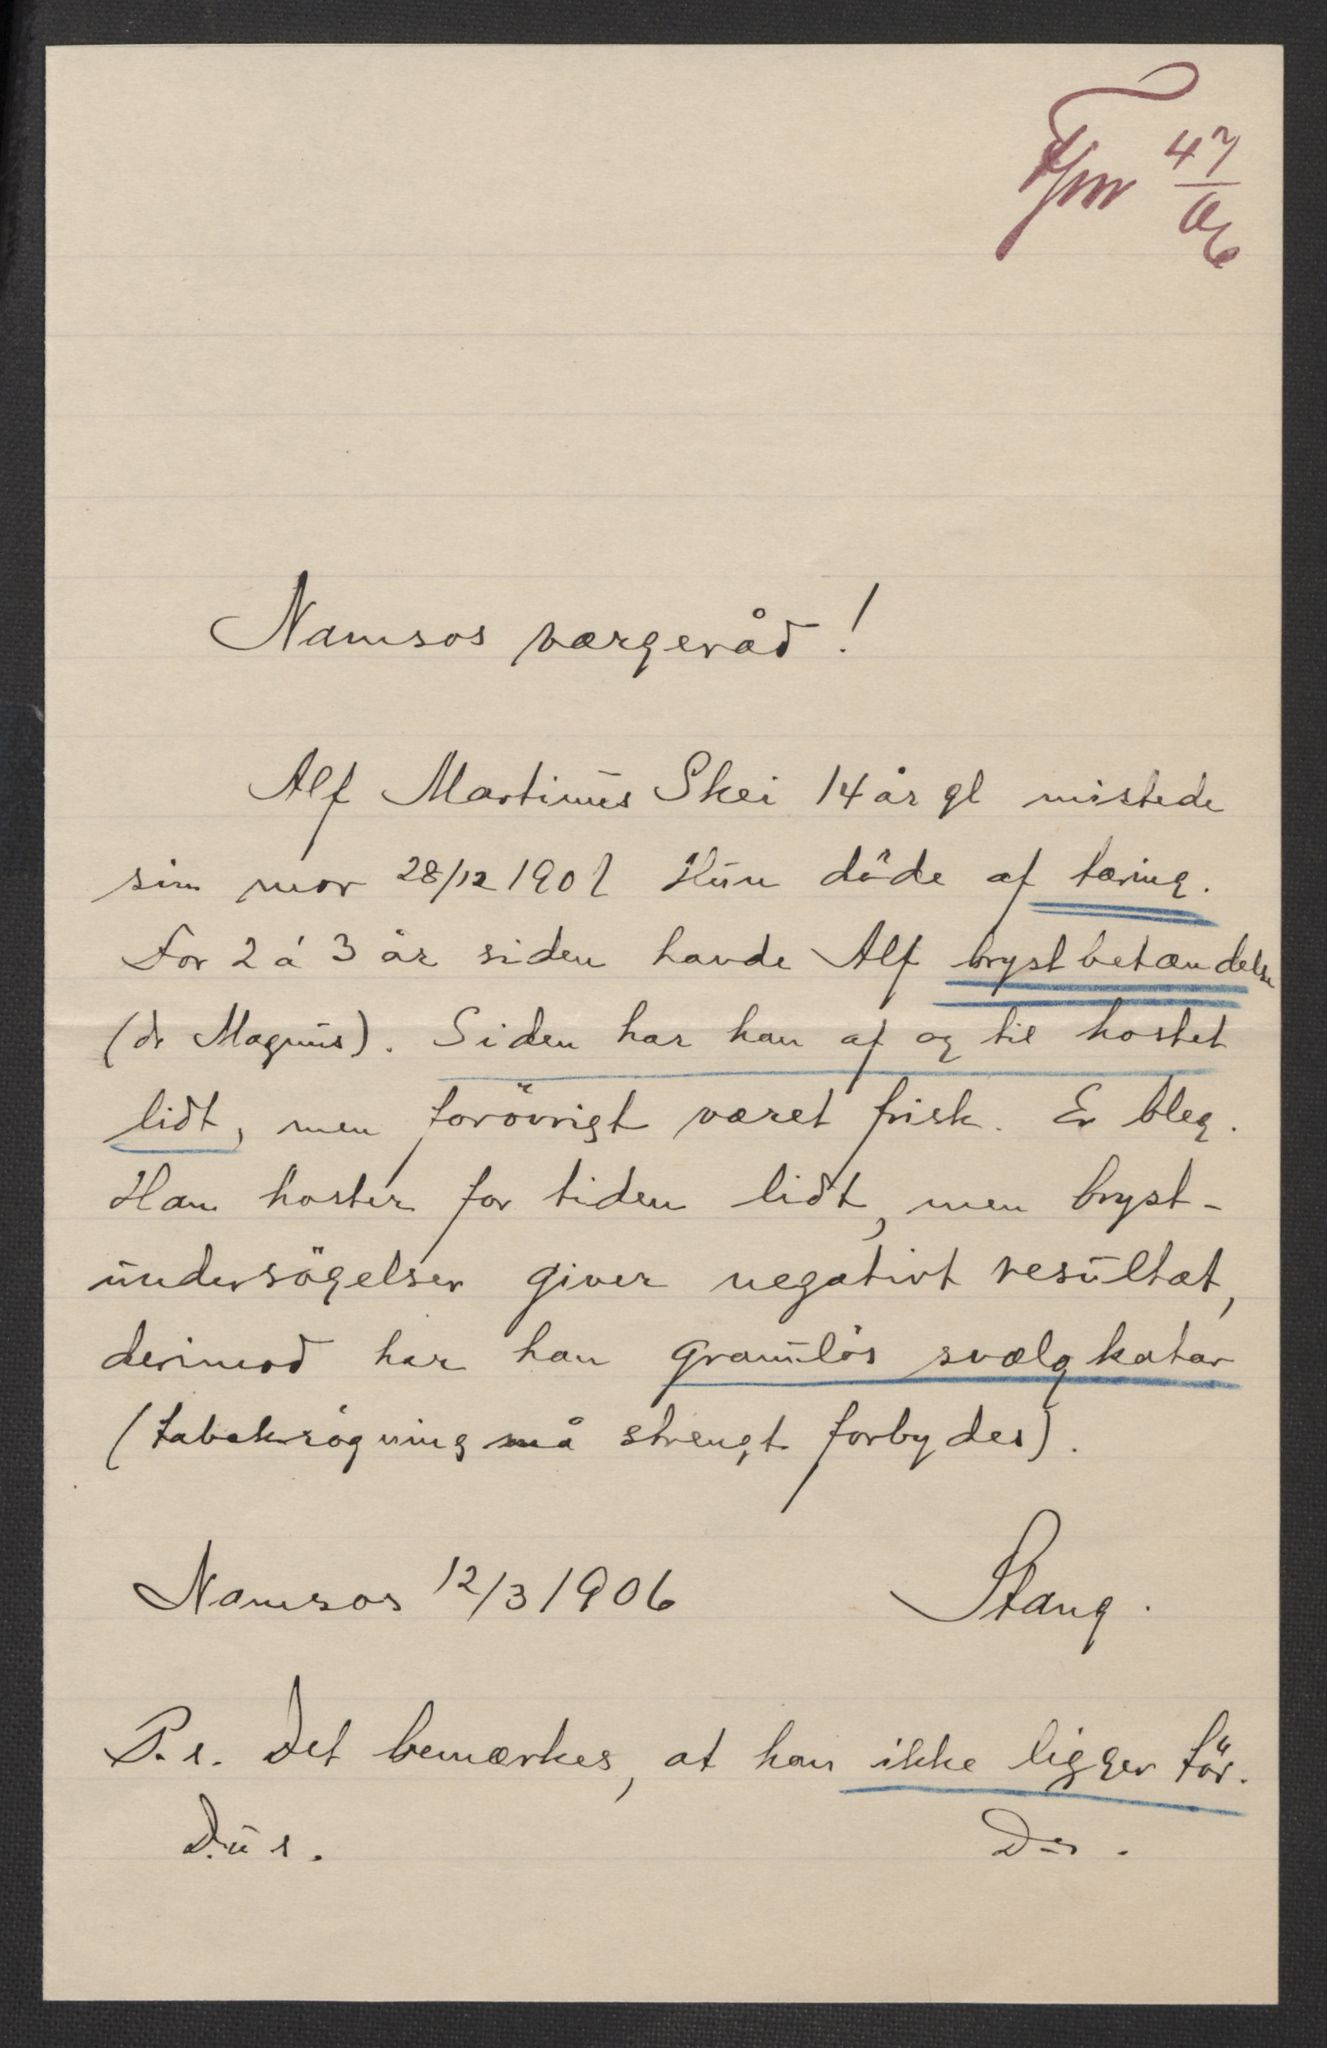 47
06
Namsos værgeråd!
Alf Martinus Skei 14 år gl mistede
sin mor 28/12 1901 Hun döde af tæring.
For 2 á 3 år siden havde Alf brystbetændelse
(dr Magnus). Siden har han af og til hostet
lidt, men forövrigt været frisk. Er bleg.
Han hoster for tiden lidt, men bryst-
undersögelser giver negativt resultat,
derimod har han granulös svælgkatar
(tabakrögning må strengt forbydes).
Namsos 12/3 1906 Stang.
P.s. Det bemærkes, at han ikke ligger tör.
D.u s. Ds.